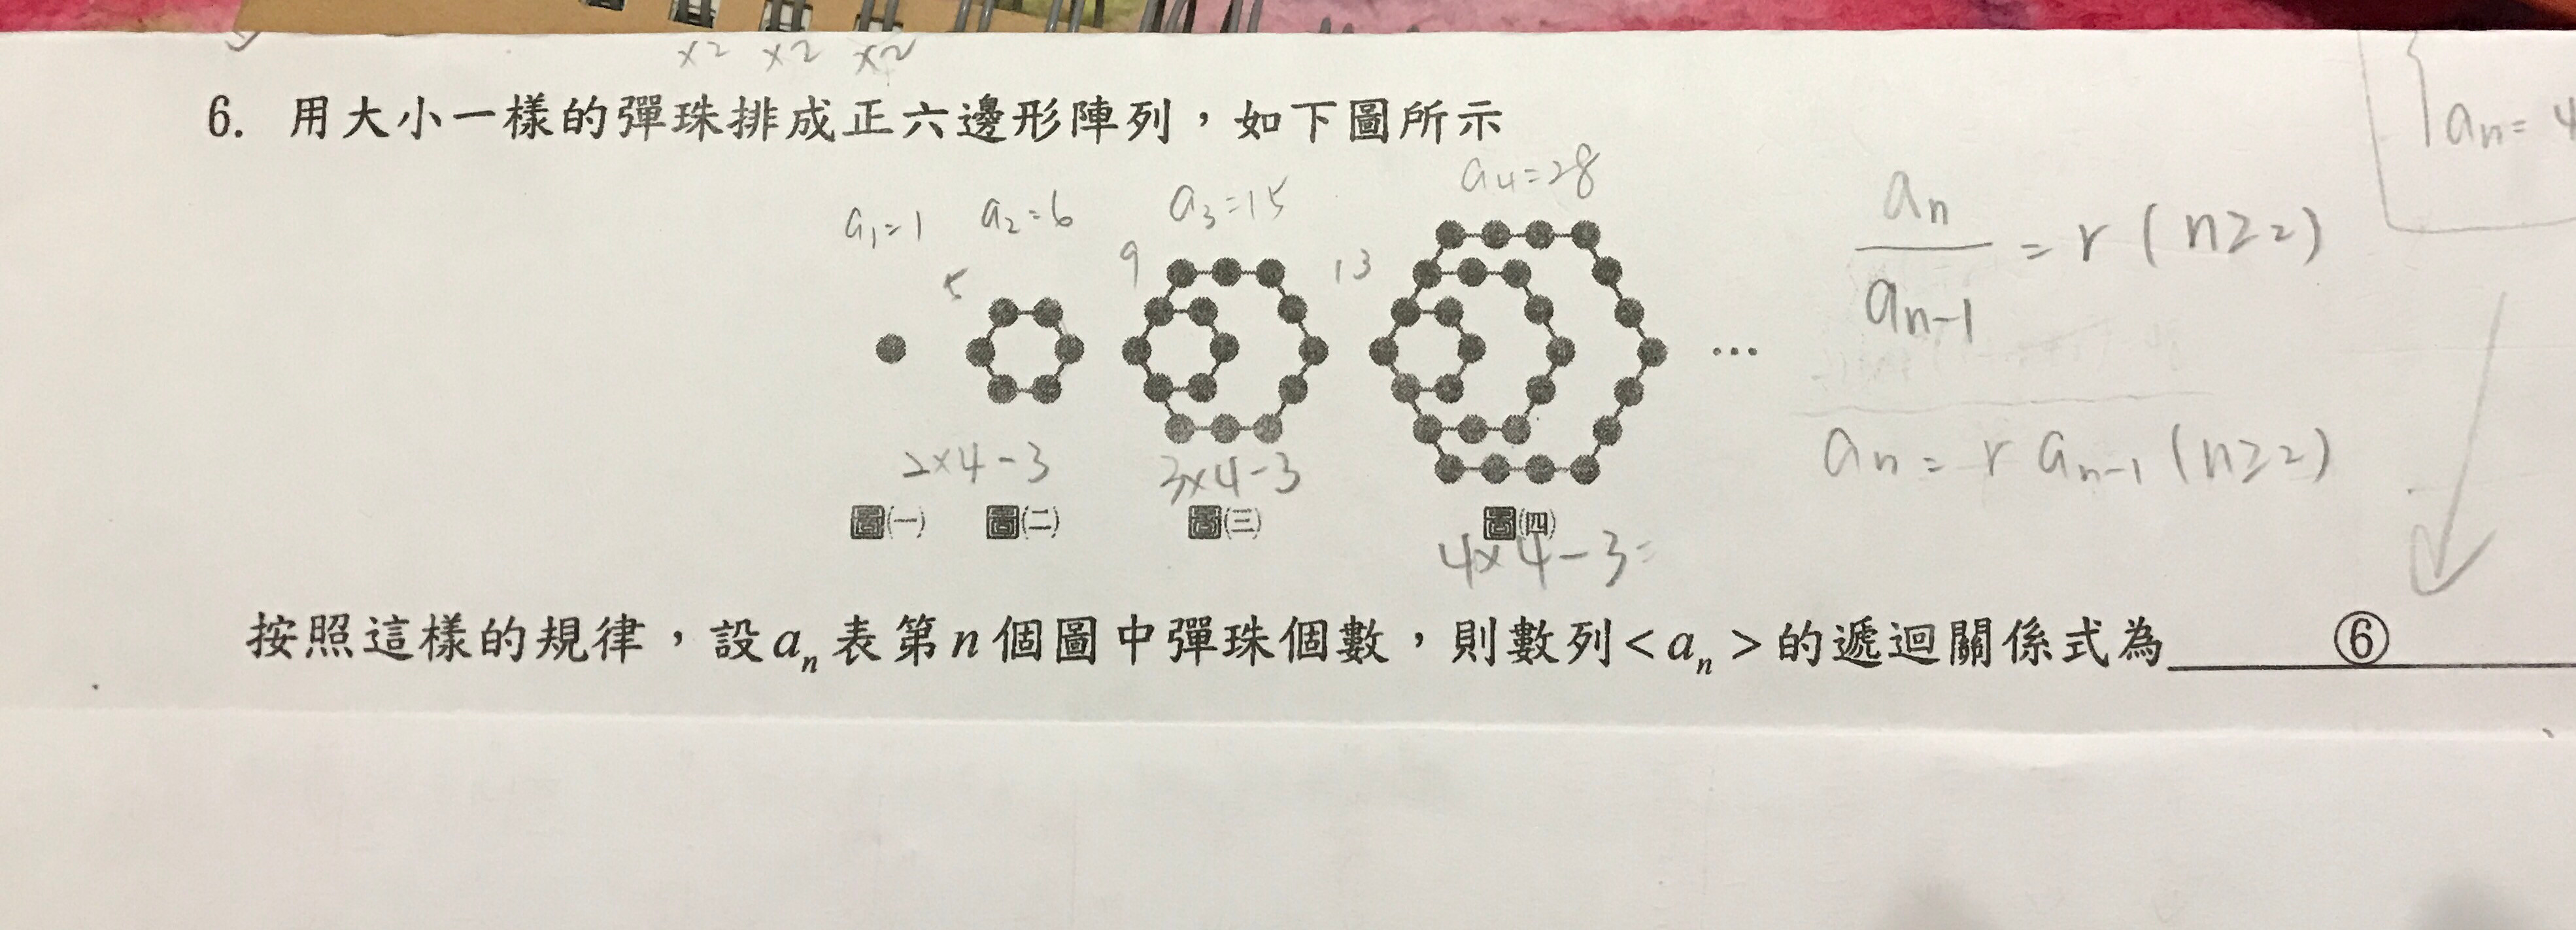 ×2 ×2 ×2
6. 用大小一樣的彈珠排成正六邊形陣列，如下圖所示
a₁=1 a₂=6 a₃=15 a₄=28
5 9 13
…
2×4-3 3×4-3
圖(一) 圖(二) 圖(三) 圖(四)
4×4-3=
aₙ/aₙ₋₁ = r (n≥2)
aₙ = r aₙ₋₁ (n≥2)
aₙ= 4
按照這樣的規律，設aₙ表第n個圖中彈珠個數，則數列<aₙ>的遞迴關係式為 ⑥